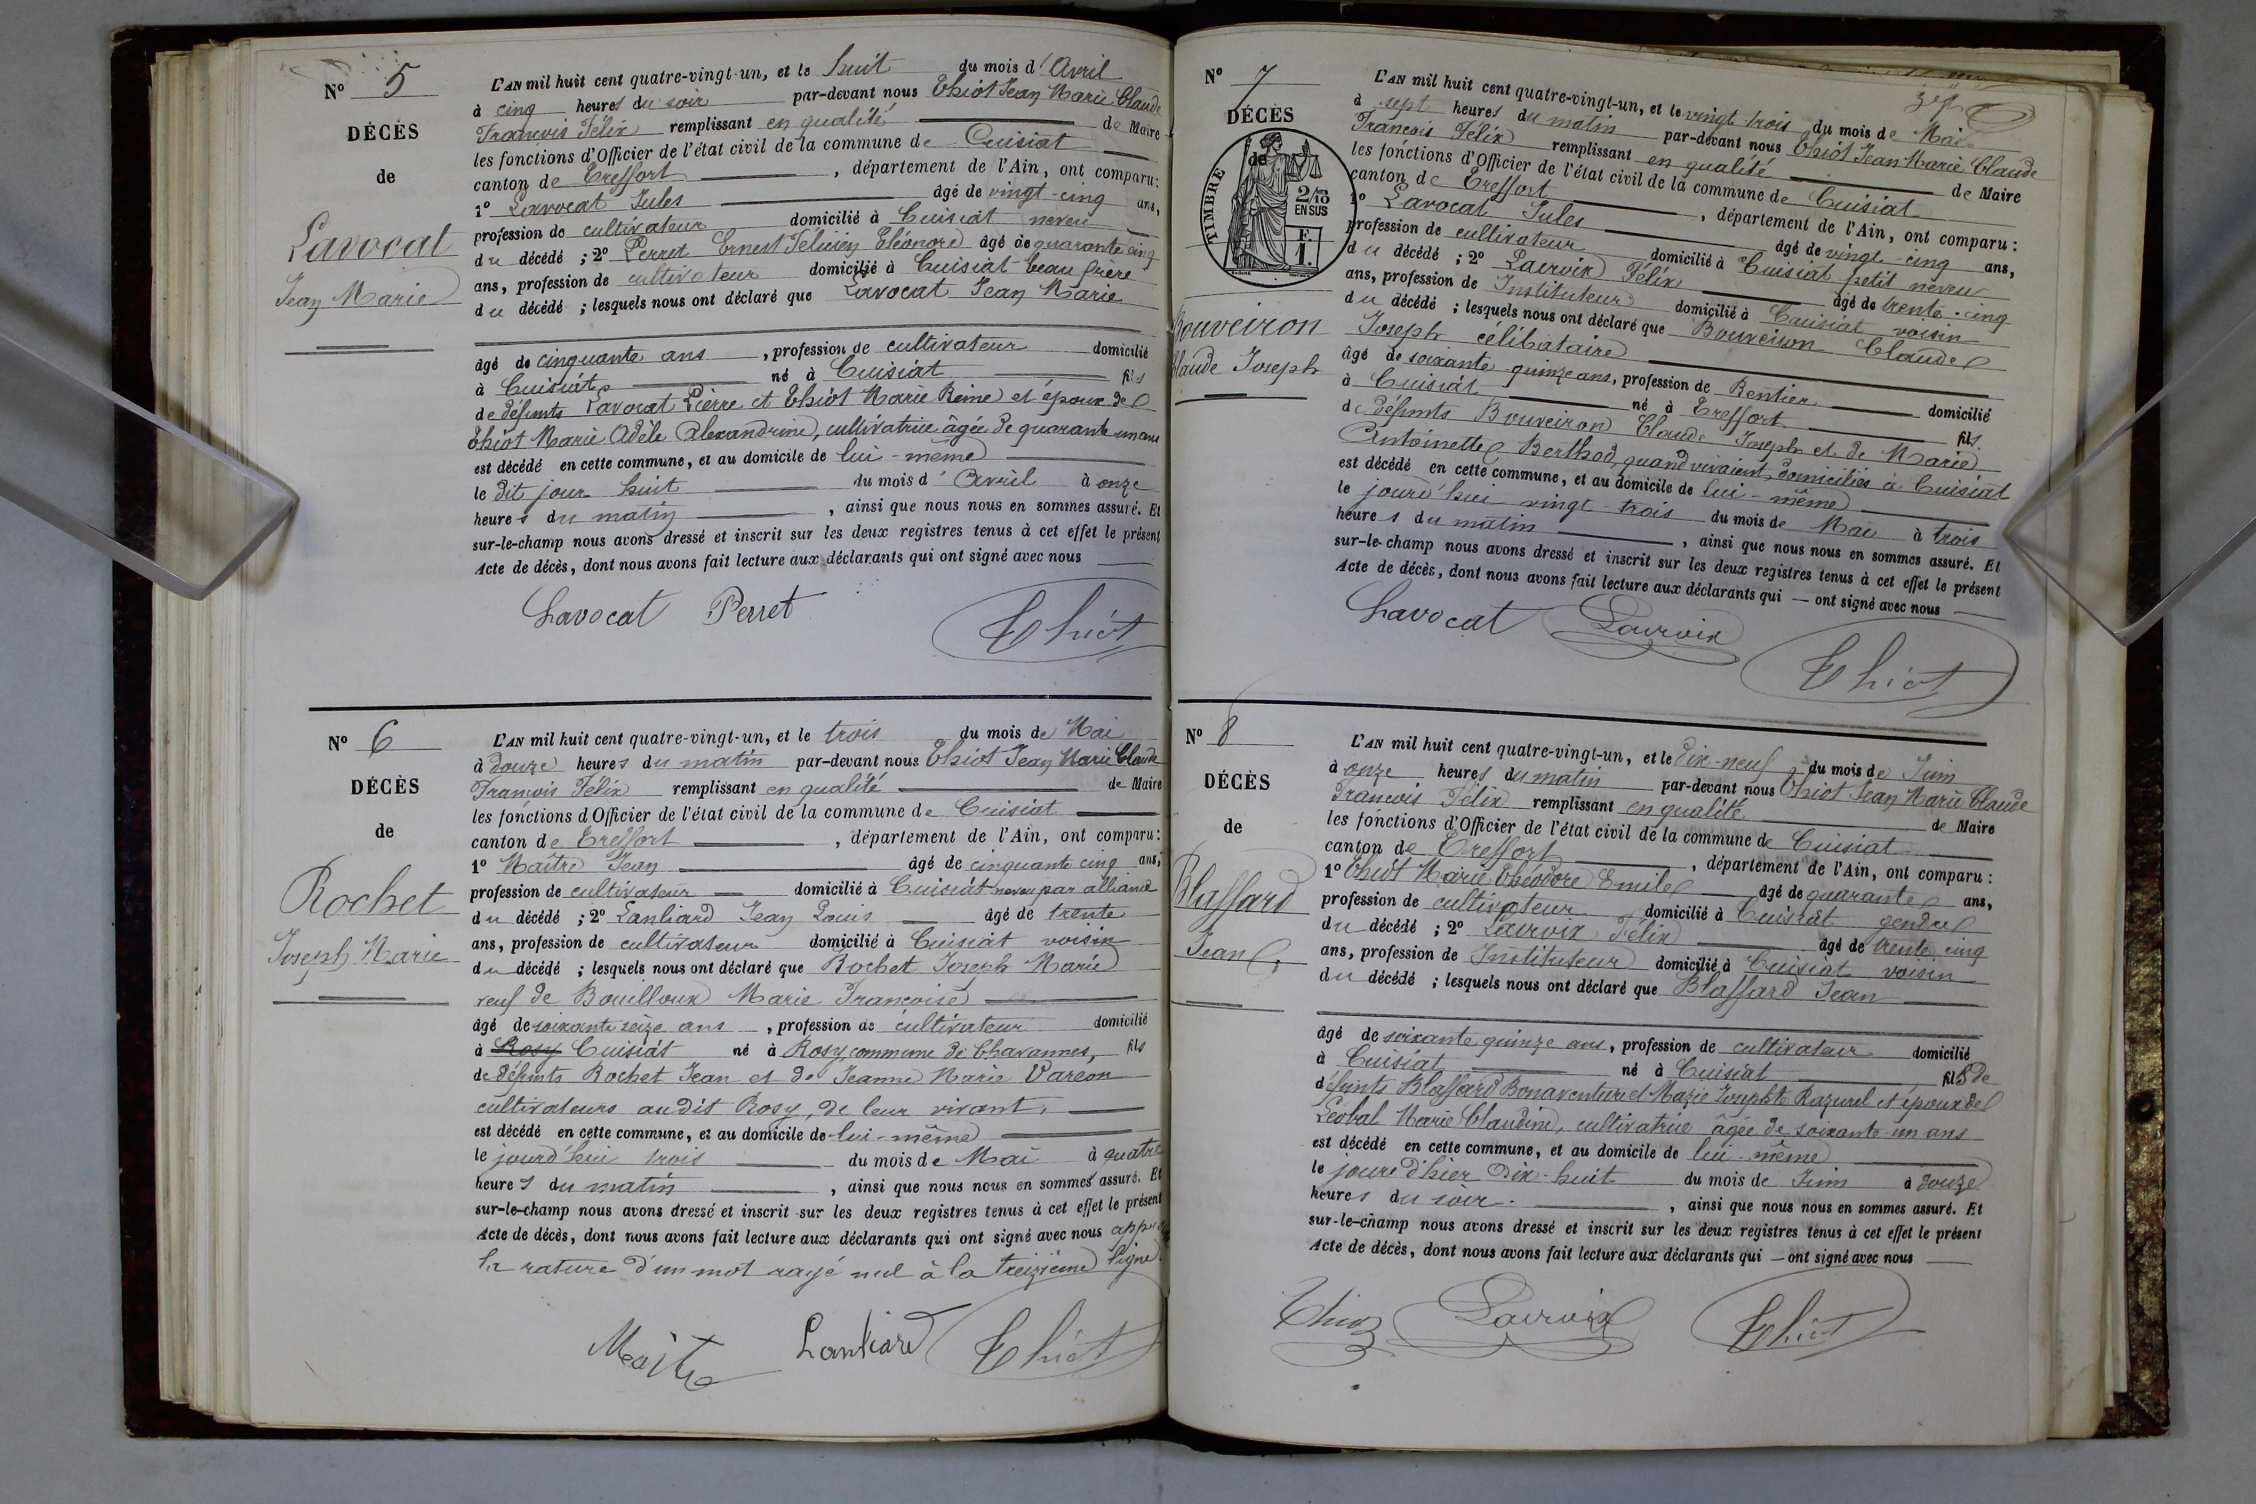 N° 5
DÉCÈS
de
Lavocat
Jean Marie
L'AN mil huit cent quatre-vingt-un, et le huit du mois d'Avril
à cinq heures du soir par-devant nous Thiot Jean Marie Claude
François Félix remplissant en qualité de Maire
les fonctions d'Officier de l'état civil de la commune de Cuisiat
canton de Treffort, département de l'Ain, ont comparu:
1° Lavocat Jules âgé de vingt-cinq ans,
profession de cultivateur domicilié à Cuisiat neveu
du décédé ; 2° Perret Ernest Félicien Eléonore âgé de quarante cinq
ans, profession de cultivateur domicilié à Cuisiat beau frère
du décédé ; lesquels nous ont déclaré que Lavocat Jean Marie
âgé de cinquante ans, profession de cultivateur domicilié
à Cuisiat né à Cuisiat fils
de défunts Lavocat Pierre et Thiot Marie Reine et époux de
Thiot Marie Adèle Alexandrine, cultivatrice âgée de quarante un ans
est décédé en cette commune, et au domicile de lui-même
le dit jour huit du mois d'Avril à onze
heures du matin, ainsi que nous nous en sommes assuré. Et
sur-le-champ nous avons dressé et inscrit sur les deux registres tenus à cet effet le présent
Acte de décès, dont nous avons fait lecture aux déclarants qui ont signé avec nous
Lavocat Perret Thiot
N° 6
DÉCÈS
de
Rochet
Joseph Marie
L'AN mil huit cent quatre-vingt-un, et le trois du mois de Mai
à douze heures du matin par-devant nous Thiot Jean Marie Claude
François Félix remplissant en qualité de Maire
les fonctions d'Officier de l'état civil de la commune de Cuisiat
canton de Treffort, département de l'Ain, ont comparu:
1° Maitre Jean âgé de cinquante cinq ans,
profession de cultivateur domicilié à Cuisiat neveu par alliance
du décédé ; 2° Lanliard Jean Louis âgé de trente
ans, profession de cultivateur domicilié à Cuisiat voisin
du décédé ; lesquels nous ont déclaré que Rochet Joseph Marie
veuf de Bouilloux Marie Françoise
âgé de soixante seize ans, profession de cultivateur domicilié
à Rosy Cuisiat né à Rosy, commune de Chavannes, fils
de défunts Rochet Jean et de Jeanne Marie Vareon
cultivateurs audit Rosy, de leur vivant,
est décédé en cette commune, et au domicile de lui-même
le jourd'hui trois du mois de Mai à quatre
heures du matin, ainsi que nous nous en sommes assuré. Et
sur-le-champ nous avons dressé et inscrit sur les deux registres tenus à cet effet le présent
Acte de décès, dont nous avons fait lecture aux déclarants qui ont signé avec nous
la rature d'un mot rayé nul à la treizième ligne.
Maitre Lanliard Thiot
N° 7
DÉCÈS
de
TIMBRE
2/10
EN SUS
F.
1.
Bouveiron
Claude Joseph
L'AN mil huit cent quatre-vingt-un, et le vingt trois du mois de Mai
à sept heures du matin par-devant nous Thiot Jean Marie Claude
François Félix remplissant en qualité de Maire
les fonctions d'Officier de l'état civil de la commune de Cuisiat
canton de Treffort, département de l'Ain, ont comparu :
1° Lavocat Jules âgé de vingt-cinq ans,
profession de cultivateur domicilié à Cuisiat petit neveu
du décédé ; 2° Lacroix Félix âgé de trente-cinq
ans, profession de Instituteur domicilié à Cuisiat voisin
du décédé ; lesquels nous ont déclaré que Bouveiron Claude
Joseph célibataire
âgé de soixante quinze ans, profession de Rentier domicilié
à Cuisiat né à Treffort fils
de défunts Bouveiron Claude Joseph et de Marie
Antoinette Berthod, quand vivaient domiciliés à Cuisiat
est décédé en cette commune, et au domicile de lui-même
le jourd'hui vingt-trois du mois de Mai à trois
heures du matin, ainsi que nous nous en sommes assuré. Et
sur-le-champ nous avons dressé et inscrit sur les deux registres tenus à cet effet le présent
Acte de décès, dont nous avons fait lecture aux déclarants qui — ont signé avec nous
Lavocat Lacroix
Thiot
N° 8
DÉCÈS
de
Blaffard
Jean
L'AN mil huit cent quatre-vingt-un, et le Dix-neuf du mois de Juin
à onze heures du matin par-devant nous Thiot Jean Marie Claude
François Félix remplissant en qualité de Maire
les fonctions d'Officier de l'état civil de la commune de Cuisiat
canton de Treffort, département de l'Ain, ont comparu :
1° Thiot Marie Théodore Emile âgé de quarante ans,
profession de cultivateur domicilié à Cuisiat gendre
du décédé ; 2° Lacroix Félix âgé de trente cinq
ans, profession de Instituteur domicilié à Cuisiat voisin
du décédé ; lesquels nous ont déclaré que Blaffard Jean
âgé de soixante quinze ans, profession de cultivateur domicilié
à Cuisiat né à Cuisiat fils de
défunts Blaffard Bonaventure et Marie Josephte Razurel et époux de
Léobal Marie Claudine, cultivatrice âgée de soixante-un ans
est décédé en cette commune, et au domicile de lui-même
le jour d'hier Dix-huit du mois de Juin à douze
heures du soir, ainsi que nous nous en sommes assuré. Et
sur-le-champ nous avons dressé et inscrit sur les deux registres tenus à cet effet le présent
Acte de décès, dont nous avons fait lecture aux déclarants qui — ont signé avec nous
Thiot Lacroix Thiot